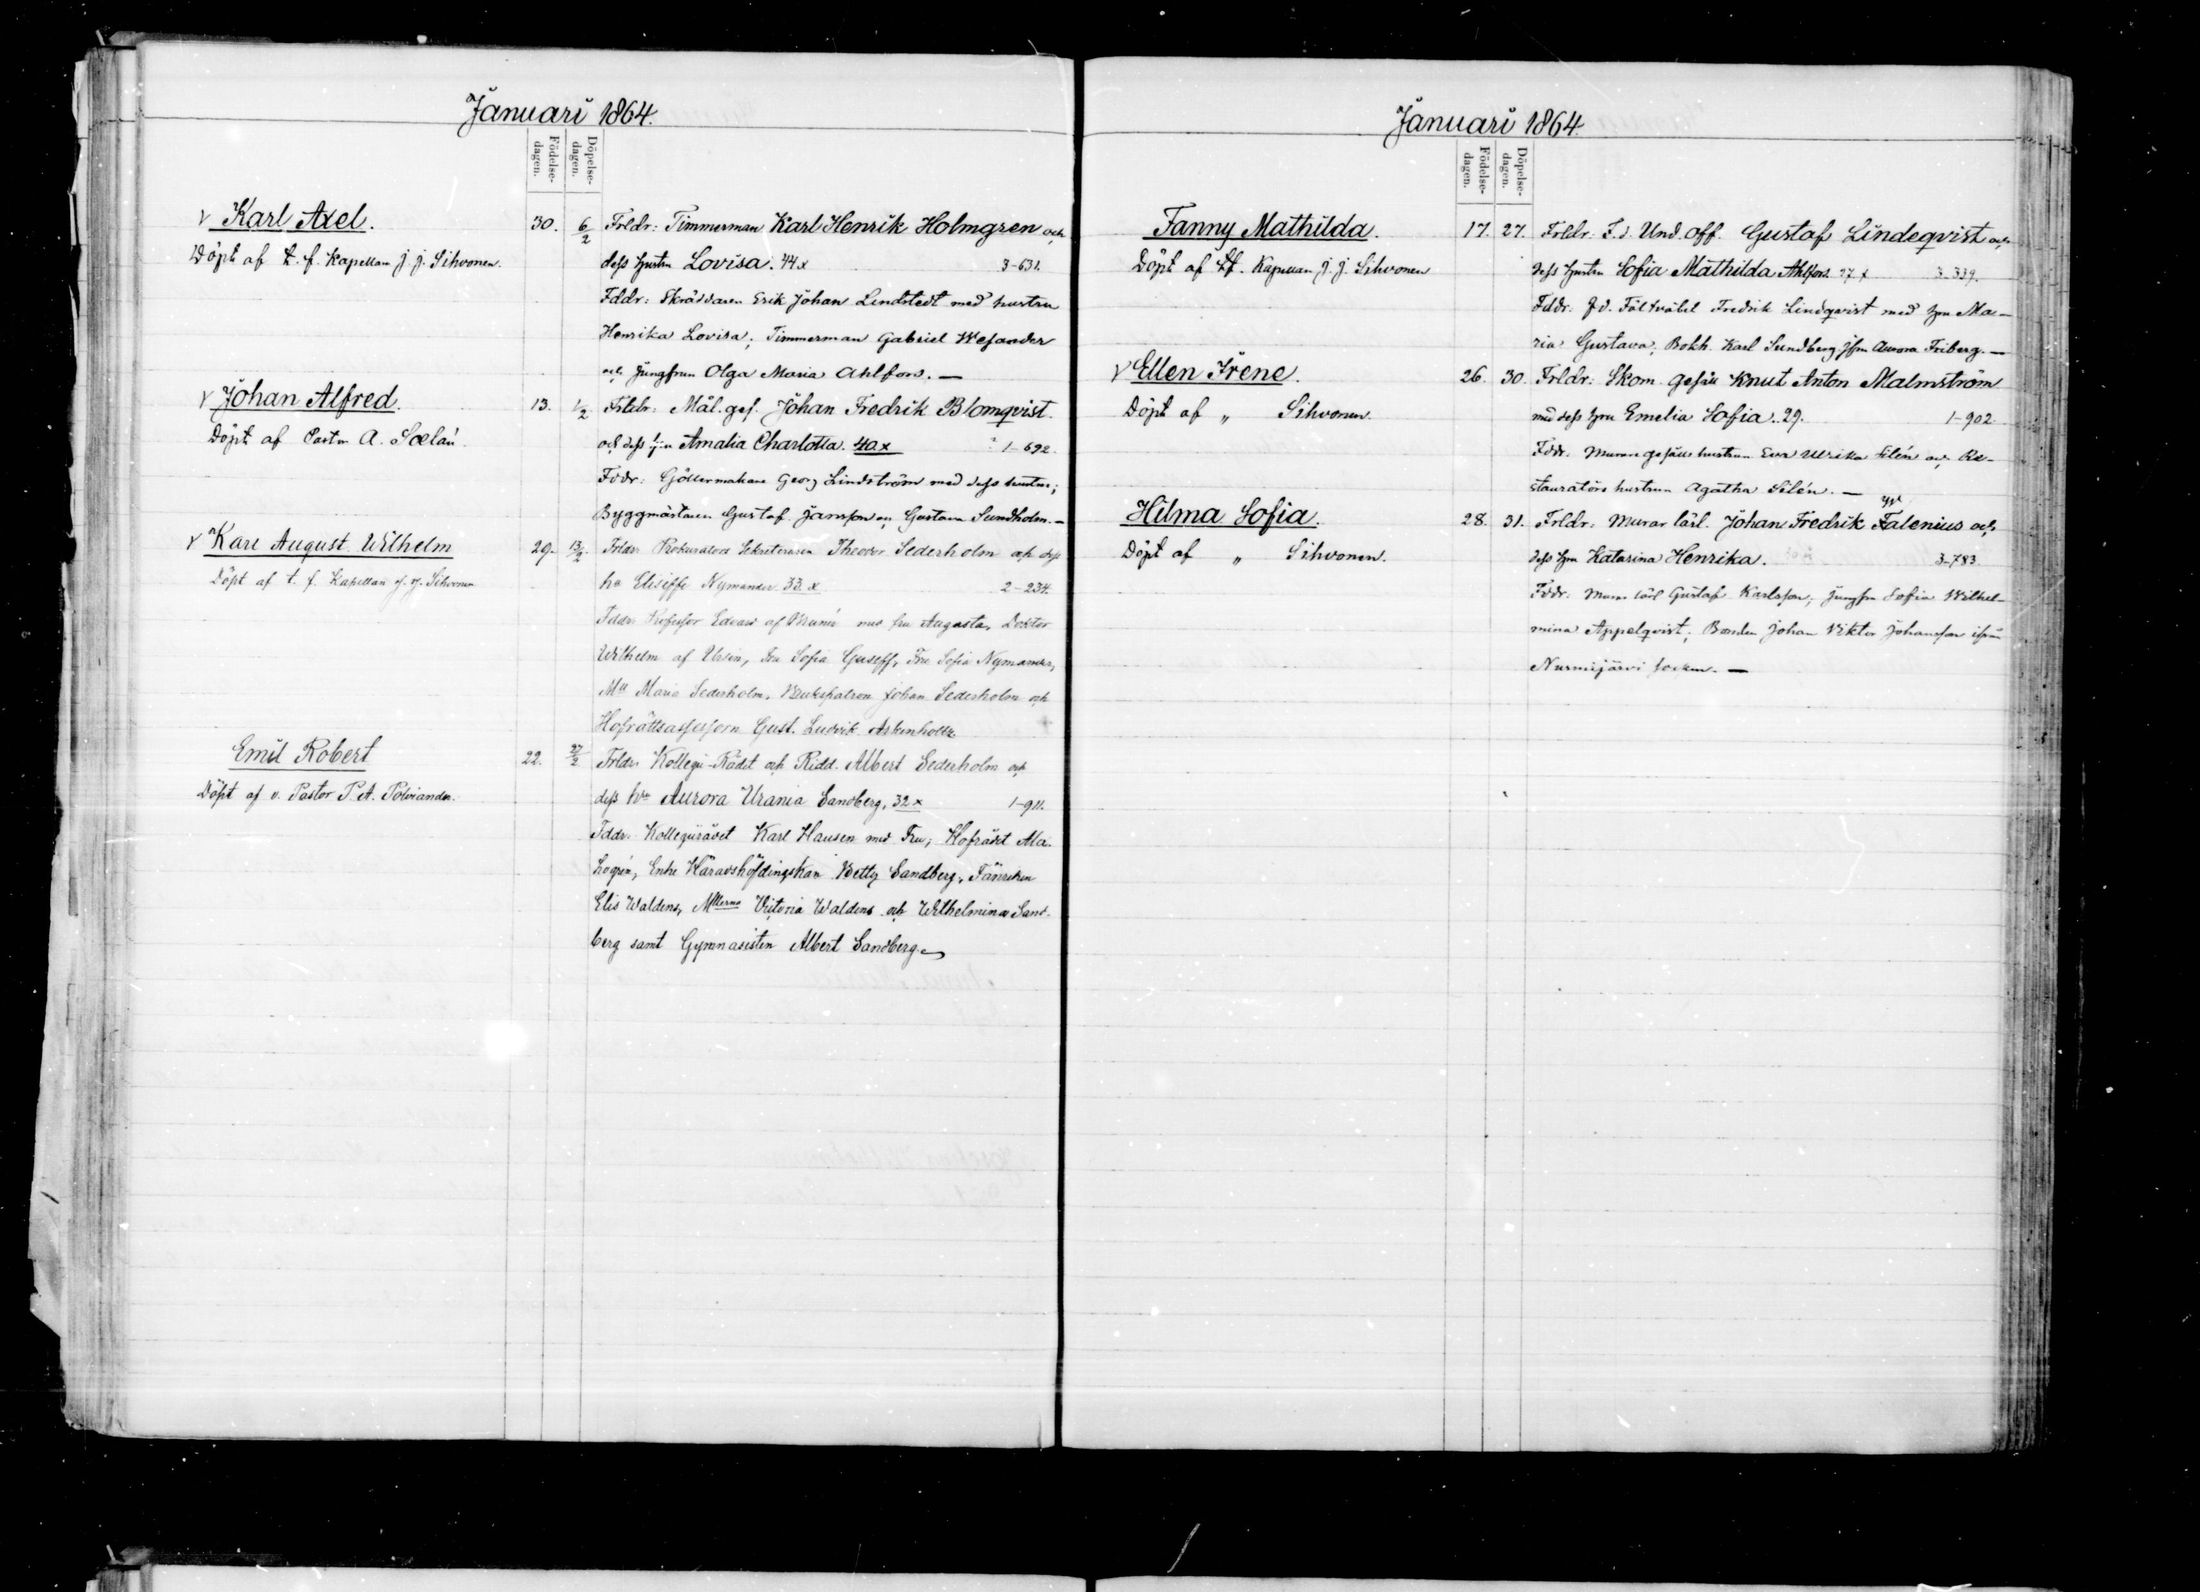 Januari 1864.
Födelse-
dagen.
Döpelse-
dagen.
v Karl Axel. 30. 6/2 Frldr: Timmerman Karl Henrik Holmgren och
Döpt af t. f. Kapellan J. J. Sihvonen. dess hustru Lovisa. 44 x 3-631.
Fddr: Skräddaren Erik Johan Lindstedt med hustru
Henrika Lovisa; Timmerman Gabriel Wesander
och Jungfrun Olga Maria Ahlfors. —
v Johan Alfred. 13. 1/2 Frldr: Mål. ges. Johan Fredrik Blomqvist.
Döpt af Pastor A. och dess Amalia Charlotta. 40. x 1-692.
Fddr: Gjöllermakare Georg Lindström med dess hustru;
Byggmästaren Gustaf Jansson och Gustava Sundholm. —
v Karl August Wilhelm 29. 13/2 Frldr: Prokurators Sekreteraren Theodor Sederholm och dess
Döpt af t. f. Kapellan J. J. Sihvonen hu Elisiffe Nymander 33. x 2-234.
Fddr: Professor Edvard af med fru Augusta, Doktor
Wilhelm af Ursin, Fru Sofia Guseff, Fru Sofia Nymander,
Mll Maria Sederholm, Brukspatron Johan Sederholm och
Hofrättsassessorn Gust. Ludvik Arkenholtz
Emil Robert 22. 27/2 Frldr: Kollegii-Rådet och Ridd. Albert Sederholm och
Döpt af v. Pastor P. A. Polviander. dess hu Aurora Urania Sandberg, 32 x 1-911.
Fddr: Kollegiirådet Karl Hausen med Fru; Hofrådet Ma-
Enke Häradshöfdingskan Betty Sandberg; Fänriken
Elis Waldens, Mllerna Victoria Waldens och Wilhelmina Sand-
berg samt Gymnasisten Albert Sandberg.
Januari 1864.
Födelse-
dagen.
Döpelse-
dagen.
Fanny Mathilda. 17. 27. Frldr: F. d. Und. Off. Gustaf Lindeqvist och
Döpt af t.f. Kapellan J. J. Sihvonen dess hustru Sofia Mathilda Ahlfors. 27 x 3-339.
Fddr: F. d. Fältväbel Fredrik Lindqvist med hru Ma-
ria Gustava; Bokh. Karl Sundberg, Jfru Aurora Friberg. —
v Ellen Irene. 26. 30. Frldr: Skom. gesäll Knut Anton Malmström
Döpt af „ Sihvonen. med dess hru Emelia Sofia. 29. 1-902.
Fddr: Muraregesälls hustrun Eva Ulrika Silén och Re-
stauratörs hustrun Agatha Silén. —
Hilma Sofia. 28. 31. Frldr: Murar lärl. Johan Fredrik Falenius och
Döpt af „ Sihvonen. dess hru Katarina Henrika. 3-783.
Fddr: Murar lärl Gustaf Karlsson; Jungfru Sofia Wilhel-
mina Appelqvist; Bonden Johan Viktor Johansson ifrån
Nurmijärvi socken. —